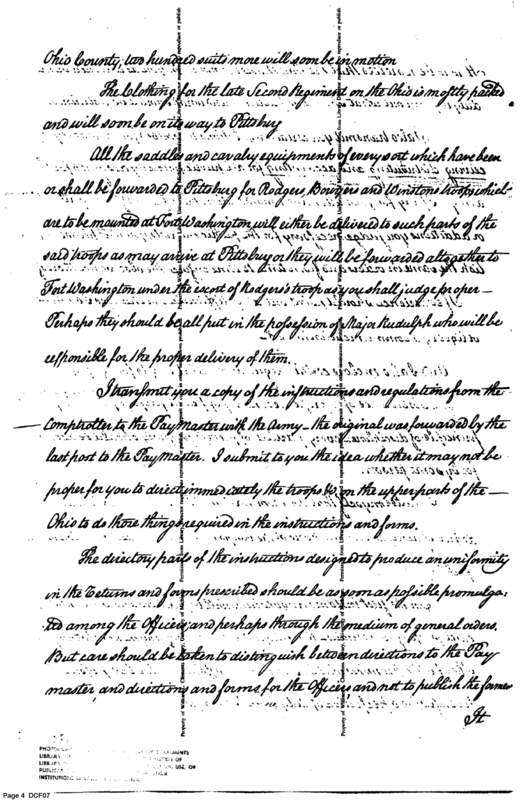 Ohio County, two hundred suits more will soon be in motion
The Clothing for the late Second Regiment on the Ohio is mostly packed
and will soon be on its way to Pittsburg
All the saddles and cavalry equipments of every sort which have been
or shall be forwarded to Pittsburg for Rodgers, Bowyers and Winstons troops which
are to be mounted at Fort Washington will either be delivered to such parts of the
said troops as may arrive at Pittsburg or they will be forwarded altogether to
Fort Washington under the escort of Rodgers's troop as you shall judge proper —
Perhaps they should be all put in the possession of Major Rudulph who will be
responsible for the proper delivery of them.
I transmit you a copy of the instructions and regulations from the
Comptroller to the Pay Master with the Army — the original was forwarded by the
last post to the Pay Master. I submit to you the idea whether it may not be
proper for you to direct immediately the troops &c on the upper parts of the —
Ohio to do those things required in the instructions and forms.
The directory parts of the instructions designed to produce an uniformity
in the Returns and forms prescribed should be as soon as possible promulga:
ted among the Officers, and perhaps through the medium of general orders.
But care should be taken to distinguish between directions to the Pay
master, and directions and forms for the Officers, and not to publish the former
It
Page 4 DCF07